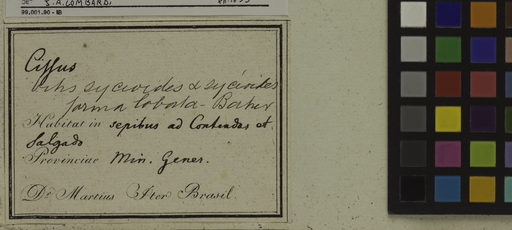 DET S.A. LOMBARDI
99.001.90 - IB
Cissus
Vitis sycioides α sycioides
forma lobata - Baker
Habitat in sepibus ad Contendas et
Salgado
Provinciae Min. Genes.
Dr. Martius Iter Brasil.